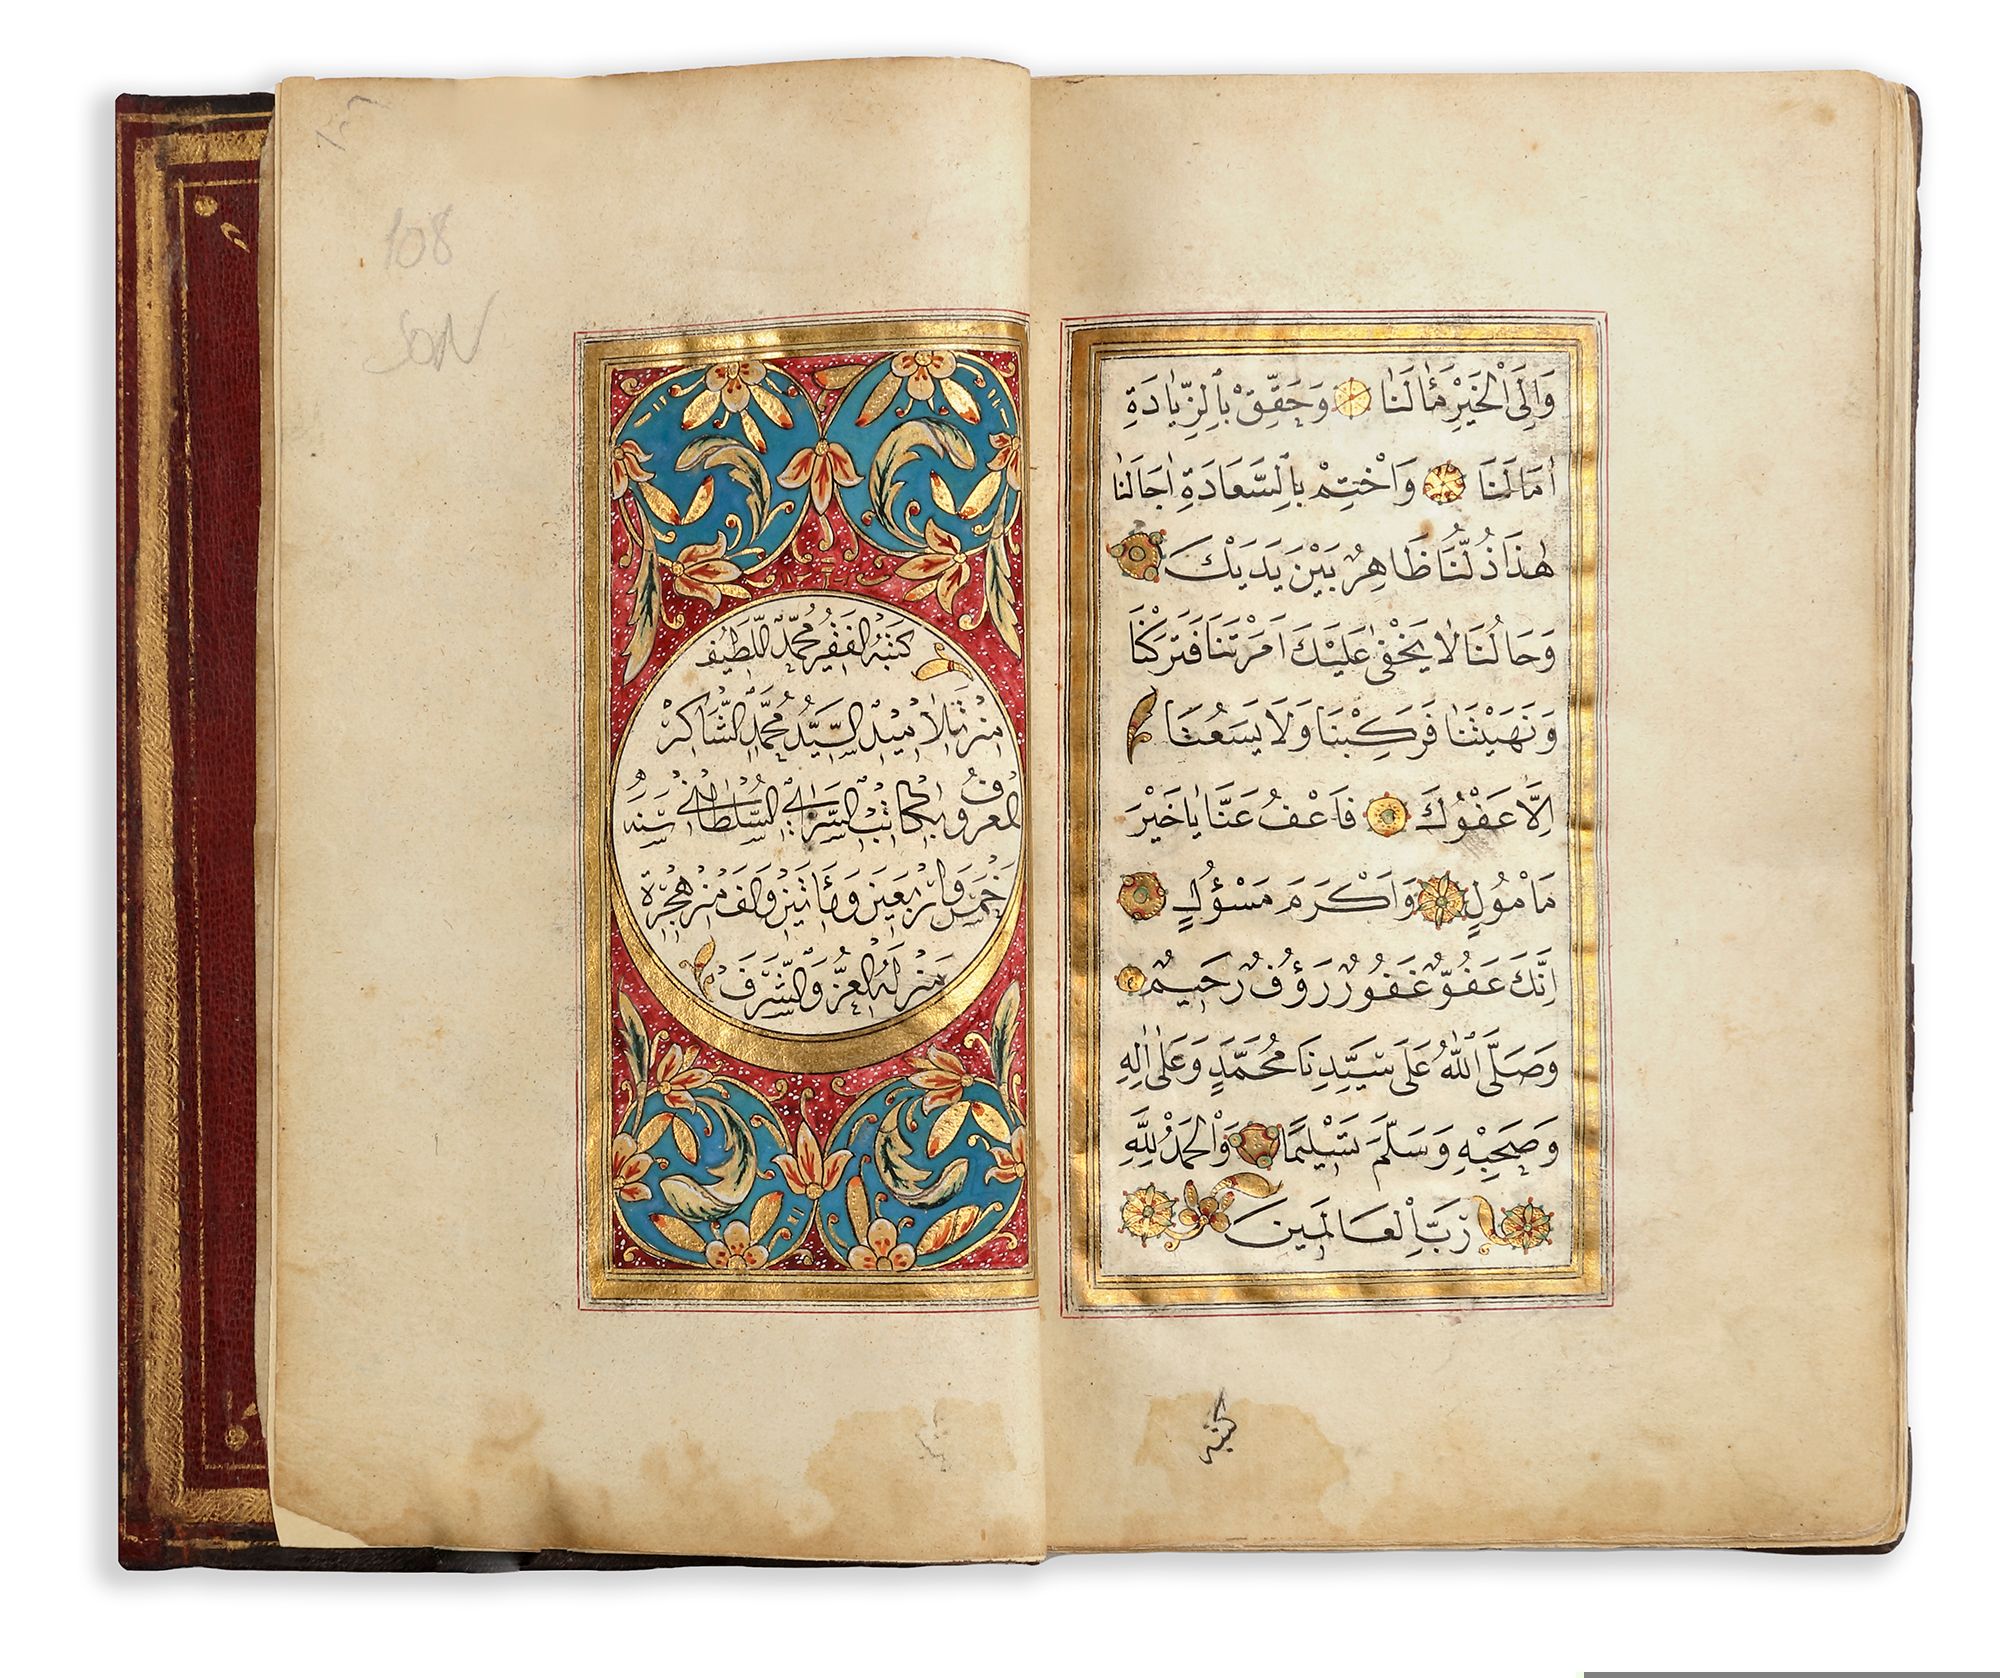 وَاِلَى الْخَيْرِ مَاٰلَنَا وَحَقِّقْ بِالزِّيَادَةِ
اٰمَالَنَا وَاخْتِمْ بِالسَّعَادَةِ اٰجَالَنَا
هٰذَا ذُلُّنَا ظَاهِرٌ بَيْنَ يَدَيْكَ
وَحَالُنَا لَا يَخْفٰى عَلَيْكَ اَمَرْتَنَا فَتَرَكْنَا
وَنَهَيْتَنَا فَرَكِبْنَا وَلَا يَسَعُنَا
اِلَّا عَفْوُكَ فَاعْفُ عَنَّا يَا خَيْرَ
مَاْمُولٍ وَاَكْرَمَ مَسْؤُلٍ
اِنَّكَ عَفُوٌّ غَفُورٌ رَؤُفٌ رَحِيمٌ
وَصَلَّى اللّٰهُ عَلَى سَيِّدِنَا مُحَمَّدٍ وَعَلٰى اٰلِهِ
وَصَحْبِهِ وَسَلَّمَ تَسْلِيمًا وَالْحَمْدُ لِلّٰهِ
رَبِّ الْعَالَمِينَ
كتبه
108
SON
كَتَبَهُ الْفَقِيرُ مُحَمَّدُ اللَّطِيفُ
مِنْ تَلَامِيذِ السَّيِّدِ مُحَمَّدِ الشَّاكِرْ
الْمَعْرُوفِ بِكَاتِبِ السَّرَايِ السُّلْطَانِي سَنَه
خَمْسٍ وَاَرْبَعِينَ وَمِائَتَيْنِ وَاَلْفٍ مِنْ هِجْرَةِ
مَنْ لَهُ الْعِزُّ وَالشَّرَفْ